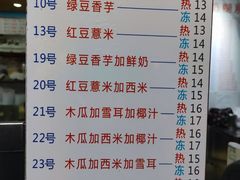 10号 绿豆香芋 热 13
冻 14
13号 红豆薏米 热 13
冻 14
19号 绿豆香芋加鲜奶 热 14
冻 15
20号 红豆薏米加西米 热 14
冻 15
21号 木瓜加雪耳加椰汁 热 16
冻 17
22号 木瓜加西米加椰汁 热 16
冻 17
23号 木瓜加西米加雪耳 热 15
冻 16